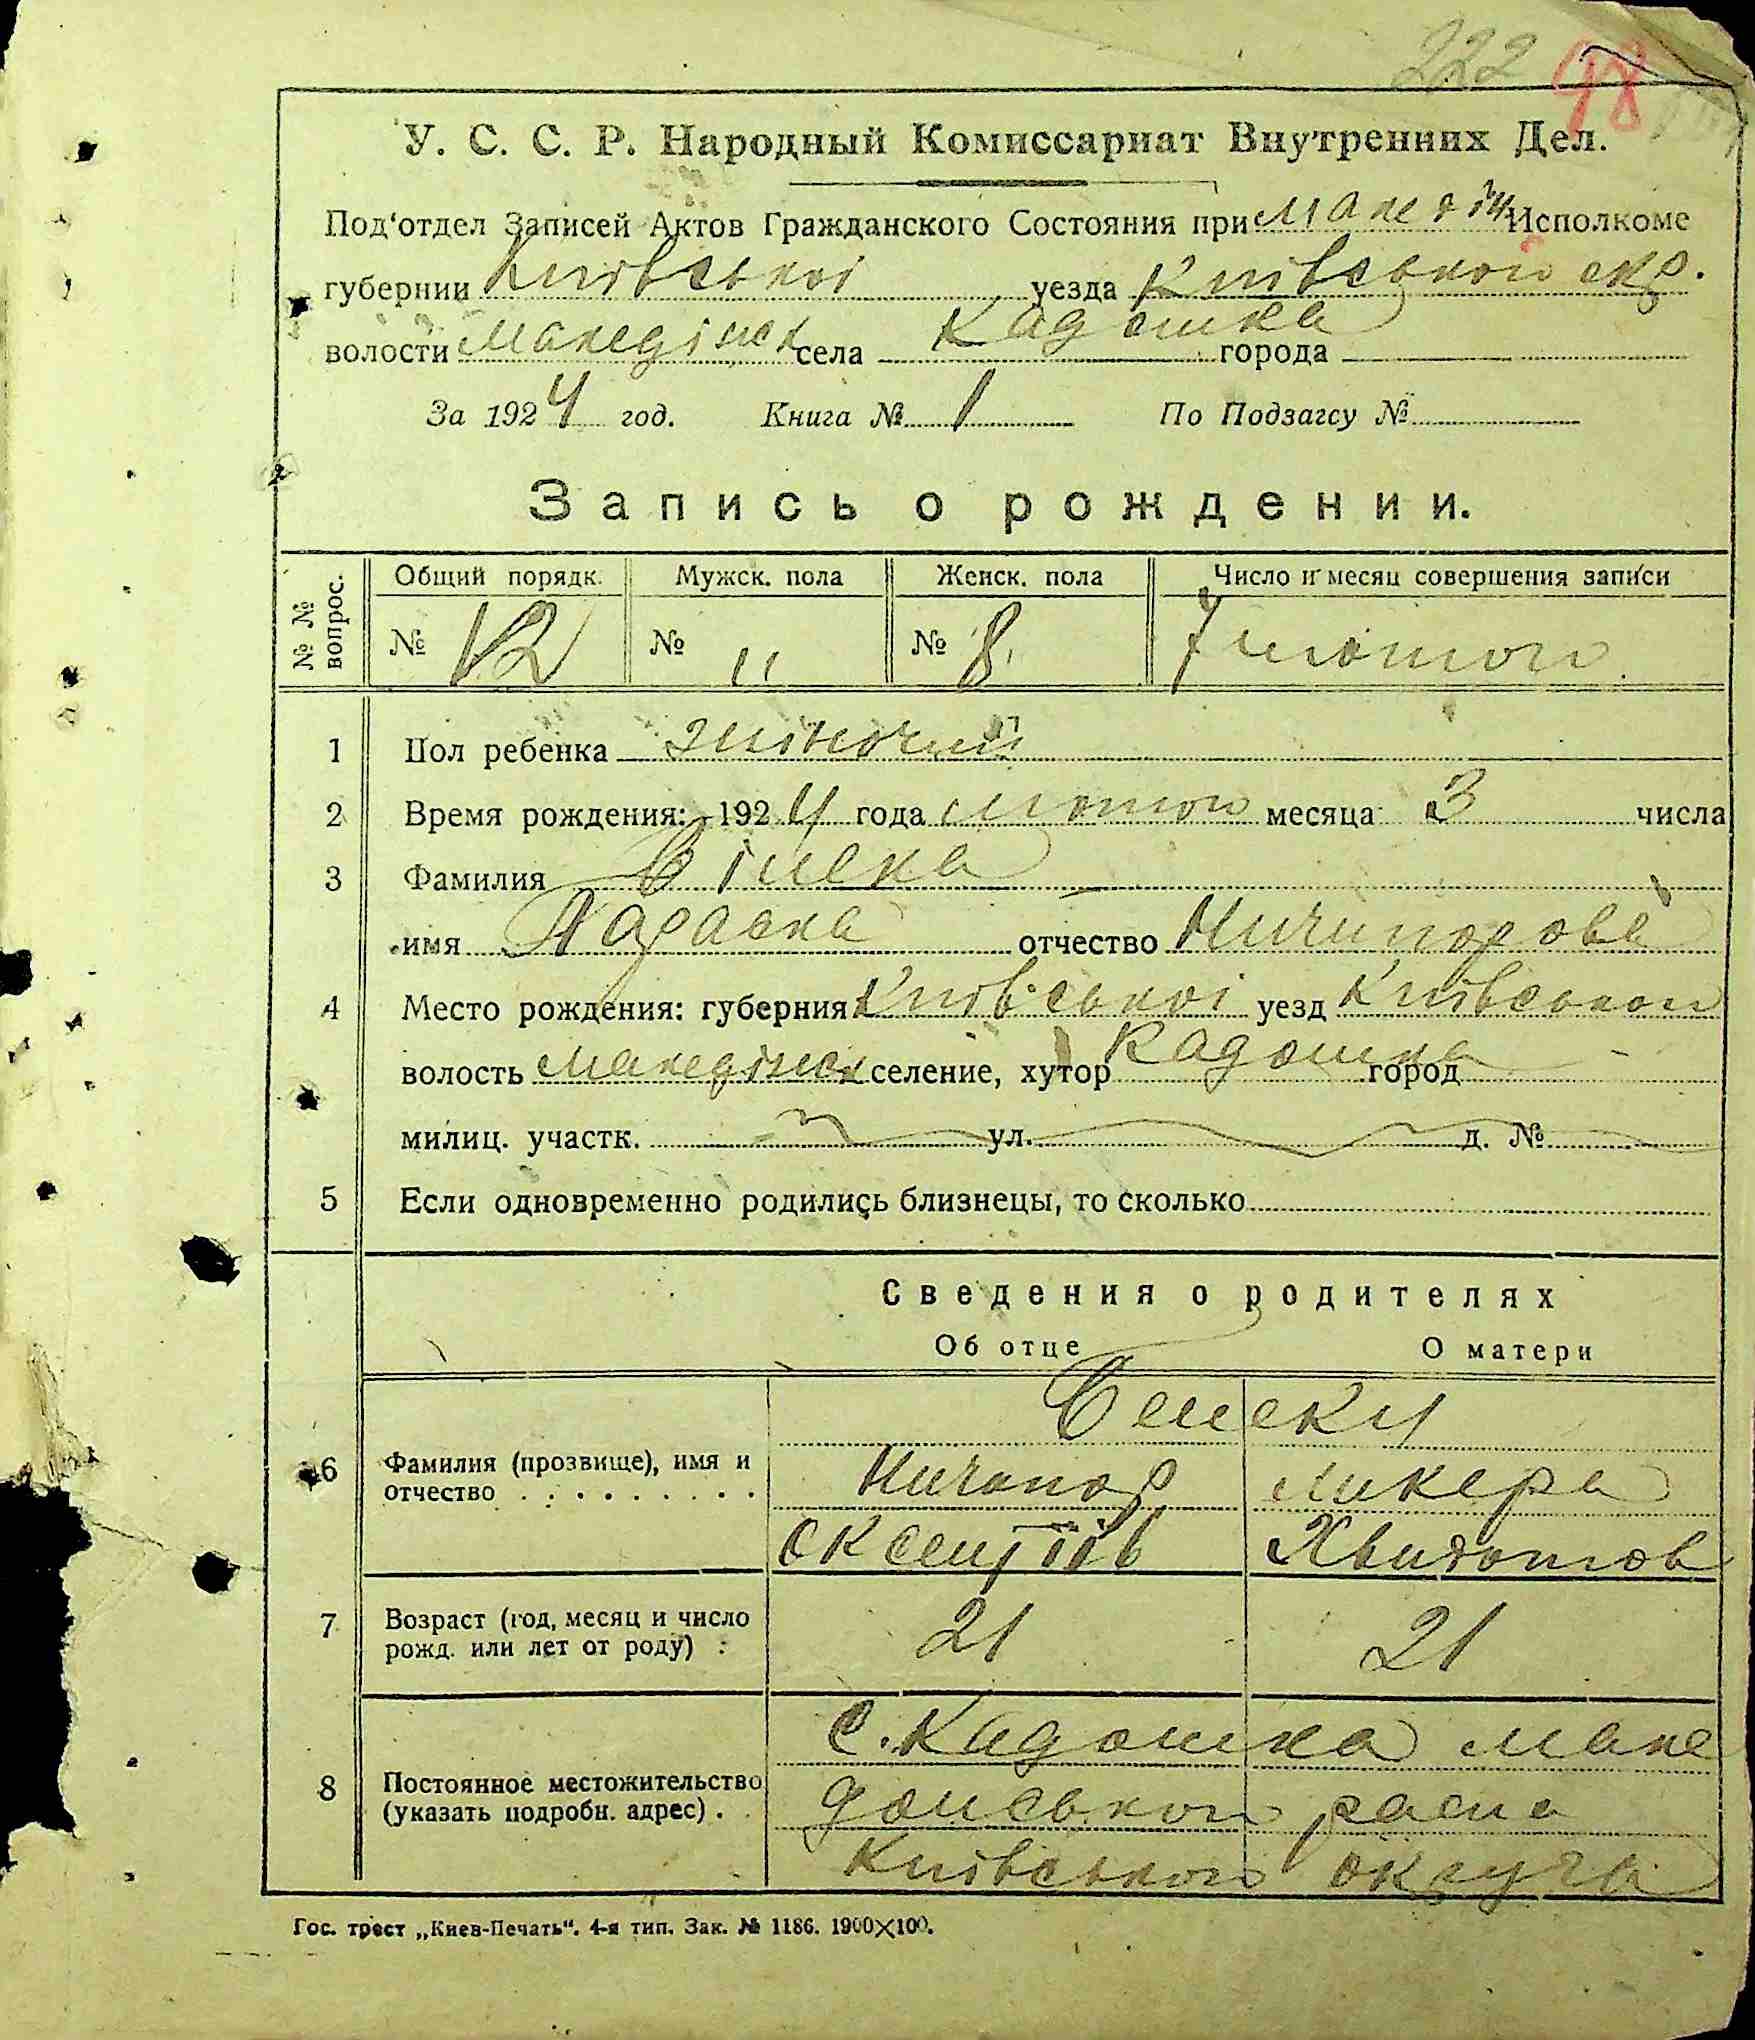 222 98
У. С. С. Р. Народный Комиссариат Внутренних Дел.
Под'отдел Записей Актов Гражданского Состояния при Исполкоме
губернии Київської уезда Київськой окр.
волости Македінск села Кадомка города
За 1924 год. Книга № 1 По Подзагсу №
Запись о рождении.
№ № вопрос. Общий порядк. Мужск. пола Женск. пола Число и месяц совершения записи
№ 12 № " № 8 7 лютои
1 Пол ребенка жіночий
2 Время рождения: 1924 года лютои месяца 3 числа
3 Фамилия
имя Параска отчество Ничипорова
4 Место рождения: губерния Київської уезд Київськои
волость Македінск селение, хутор Кадомка город
милиц. участк. ул. д. №
5 Если одновременно родились близнецы, то сколько
Сведения о родителях
Об отце О матери
6 Фамилия (прозвище), имя и отчество
Ничипор Ликера
7 Возраст (год, месяц и число рожд. или лет от роду) : 21 21
8 Постоянное местожительство (указать подробн. адрес) .
с. Кадомка Маке
донськои раена
Київськои округа
Гос. трест „Киев-Печать“. 4-я тип. Зак. № 1186. 1900×100.